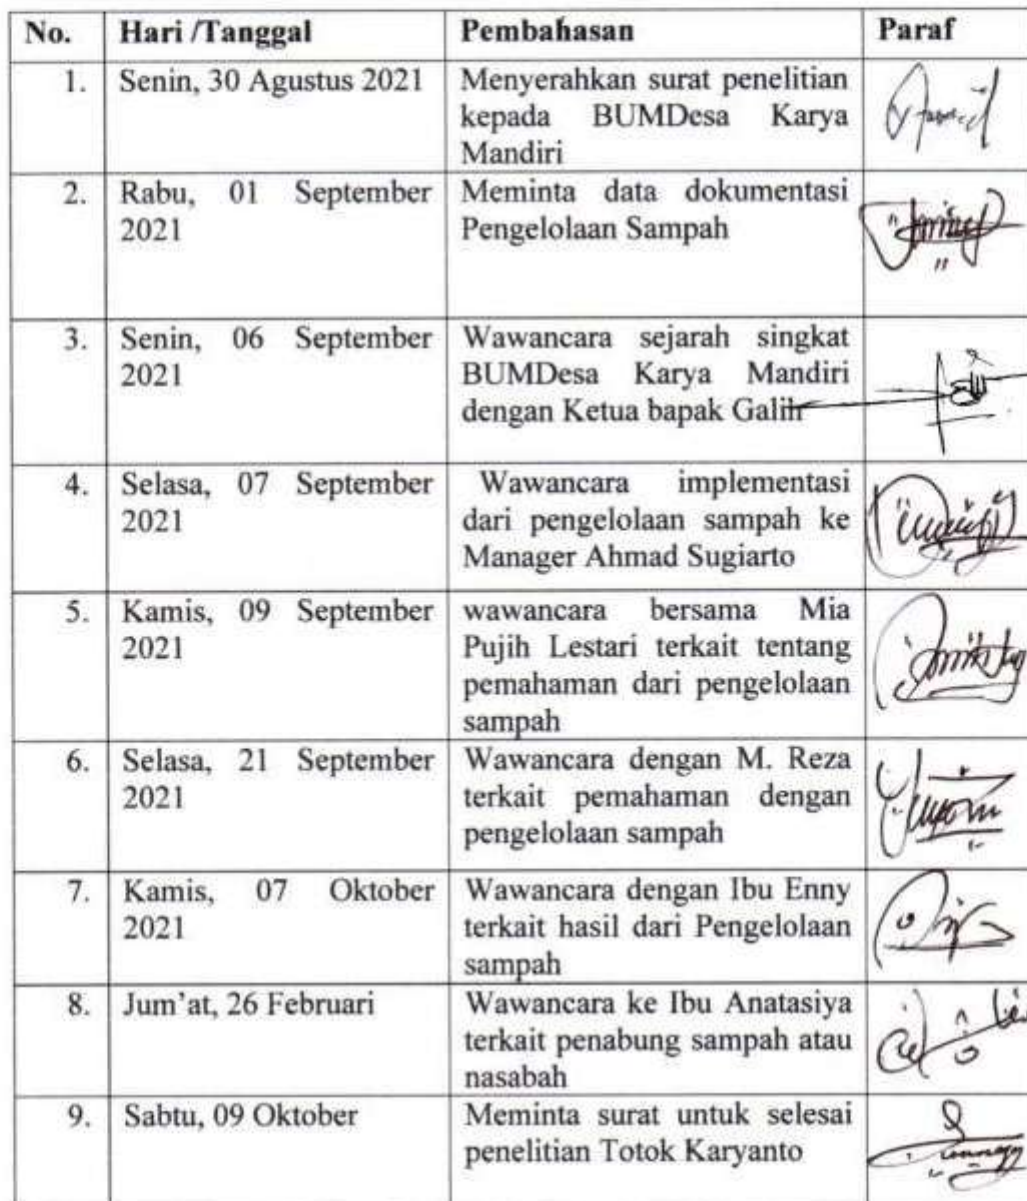 No. Hari /Tanggal Pembahasan Paraf
1. Senin, 30 Agustus 2021 Menyerahkan surat penelitian
kepada BUMDesa Karya
Mandiri
2. Rabu, 01 September Meminta data dokumentasi
2021 Pengelolaan Sampah
3. Senin, 06 September Wawancara sejarah singkat
2021 BUMDesa Karya Mandiri
dengan Ketua bapak Galih
4. Selasa, 07 September Wawancara implementasi
2021 dari pengelolaan sampah ke
Manager Ahmad Sugiarto
5. Kamis, 09 September wawancara bersama Mia
2021 Pujih Lestari terkait tentang
pemahaman dari pengelolaan
sampah
6. Selasa, 21 September Wawancara dengan M. Reza
2021 terkait pemahaman dengan
pengelolaan sampah
7. Kamis, 07 Oktober Wawancara dengan Ibu Enny
2021 terkait hasil dari Pengelolaan
sampah
8. Jum'at, 26 Februari Wawancara ke Ibu Anatasiya
terkait penabung sampah atau
nasabah
9. Sabtu, 09 Oktober Meminta surat untuk selesai
penelitian Totok Karyanto